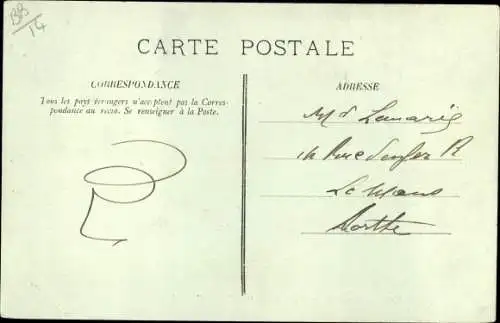 BB
14
CARTE POSTALE
CORRESPONDANCE
Tous les pays étrangers n'acceptent pas la Corres-
pondance au recto. Se renseigner à la Poste.
ADRESSE
Md Lamarié
14 Rue
Le Mans
Sarthe